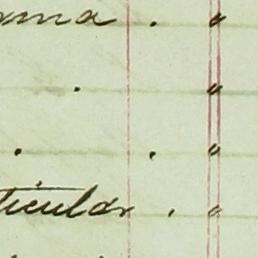 ama . "
. "
. . "
ticular . "